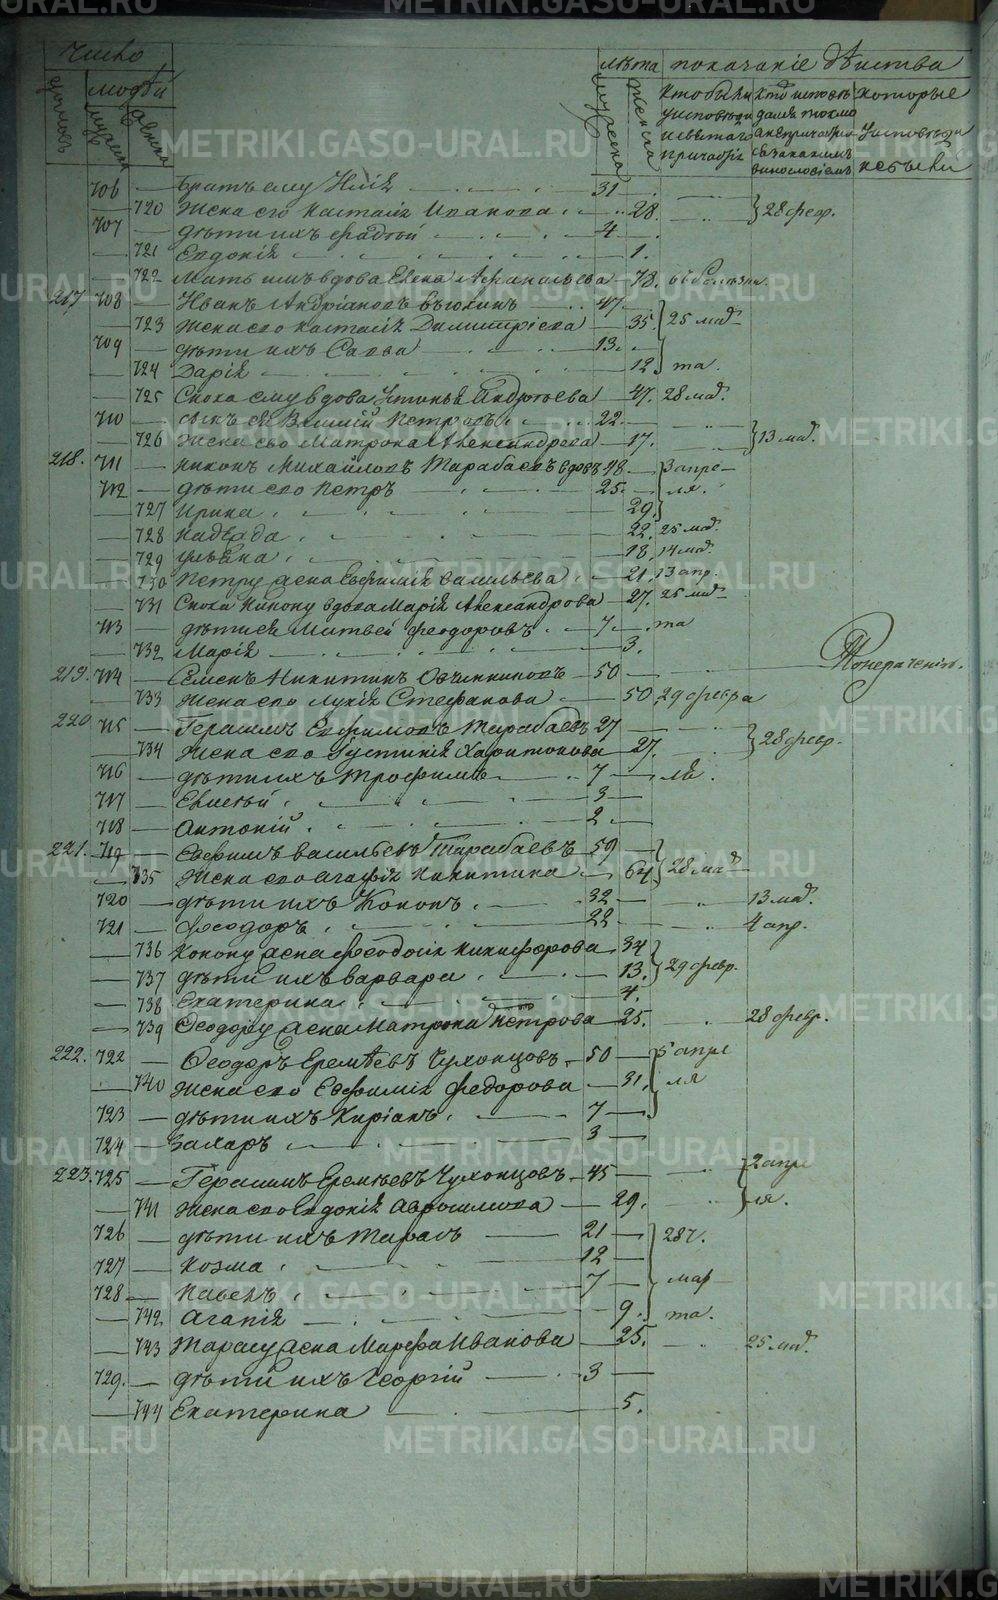 Число лѣта показаніе дѣйства
людей
706 — Братъ ему Илія 31
— 720 Жена его Наталія Иванова 28. } 28 февр.
707 — дѣти ихъ 4
— 721 Евдокія 1.
— 722 Мать имъ вдова Елена Афанасьева 78.
217 708 — Иванъ Андріановъ Вьюхинъ 47
— 723 Жена его Наталія Димитріева — 35. } 25 мар
709 — дѣти ихъ Савва 13.
— 724 Дарія 12 та.
— 725 Сноха ему вдова Устинья Андреева — 47. 28 мар.
710 — сынъ ея Василій Петровъ 22.
— 726 Жена его Матрона Александрова — 17. } 13 мар.
218. 711 — Никонъ Михайловъ Тарабаевъ вдовъ 48. — } 3 апре-
712 — дѣти его Петръ 25. — ля.
— 727 Ирина 29.
— 728 Надежда 22. 25 мар.
— 729 Ульяна 18. 14 мар.
— 730 Петру жена Евфимія Васильева 21. 13 апр.
— 731 Сноха Никону вдова Марія Александрова — 27. 25 мар-
713 — дѣти ея Матвей Феодоровъ 7 — та
— 732 Марія 3.
219. 714 — Семенъ Никитинъ Овчинниковъ — 50
— 733 Жена его Стефанова — 50. 29 февра
220 715 — Герасимъ Евфимовъ Тарабаевъ 27
— 734 Жена его Устинія Харитонова — 27. } 28 февр.
716 — дѣти ихъ Трофимъ 7
717 — Евсевій 3
718 — Антоній 2
221. 719 — Евфимъ Васильевъ Тарабаевъ — 59 —
— 735 Жена его Агафія Никитина — 64 } 28 мар
720 — дѣти ихъ Кононъ 32 — 13 мар.
721 — Феодоръ 22 — 4 апр.
— 736 Конону жена Феодосія Никифорова — 34
— 737 дѣти ихъ Варвара 13. } 29 февр.
— 738 Екатерина 4.
— 739 Феодору жена Матрона Петрова — 25. 28 февр.
222. 722 — Феодоръ Еремѣевъ Чухонцовъ — 50 — } 5 апре
— 740 Жена его Евфимія Федорова — 31. ля
723 — дѣти ихъ Киріакъ 7 —
724 — Захаръ 3 —
223. 725 — Герасимъ Еремѣевъ Чухонцовъ — 45 — } 2 апре
— 741 Жена его Евдокія — 29. ля.
726 — дѣти ихъ Тарасъ 21 — } 28 ч.
727 — Козма 12 —
728 — Павелъ 7 — мар
— 742 Агапія 9. та.
— 743 Тарасу жена Марфа Иванова — 25. 25 мар.
729. — дѣти ихъ Георгій 3 —
— 744 Екатерина 5.